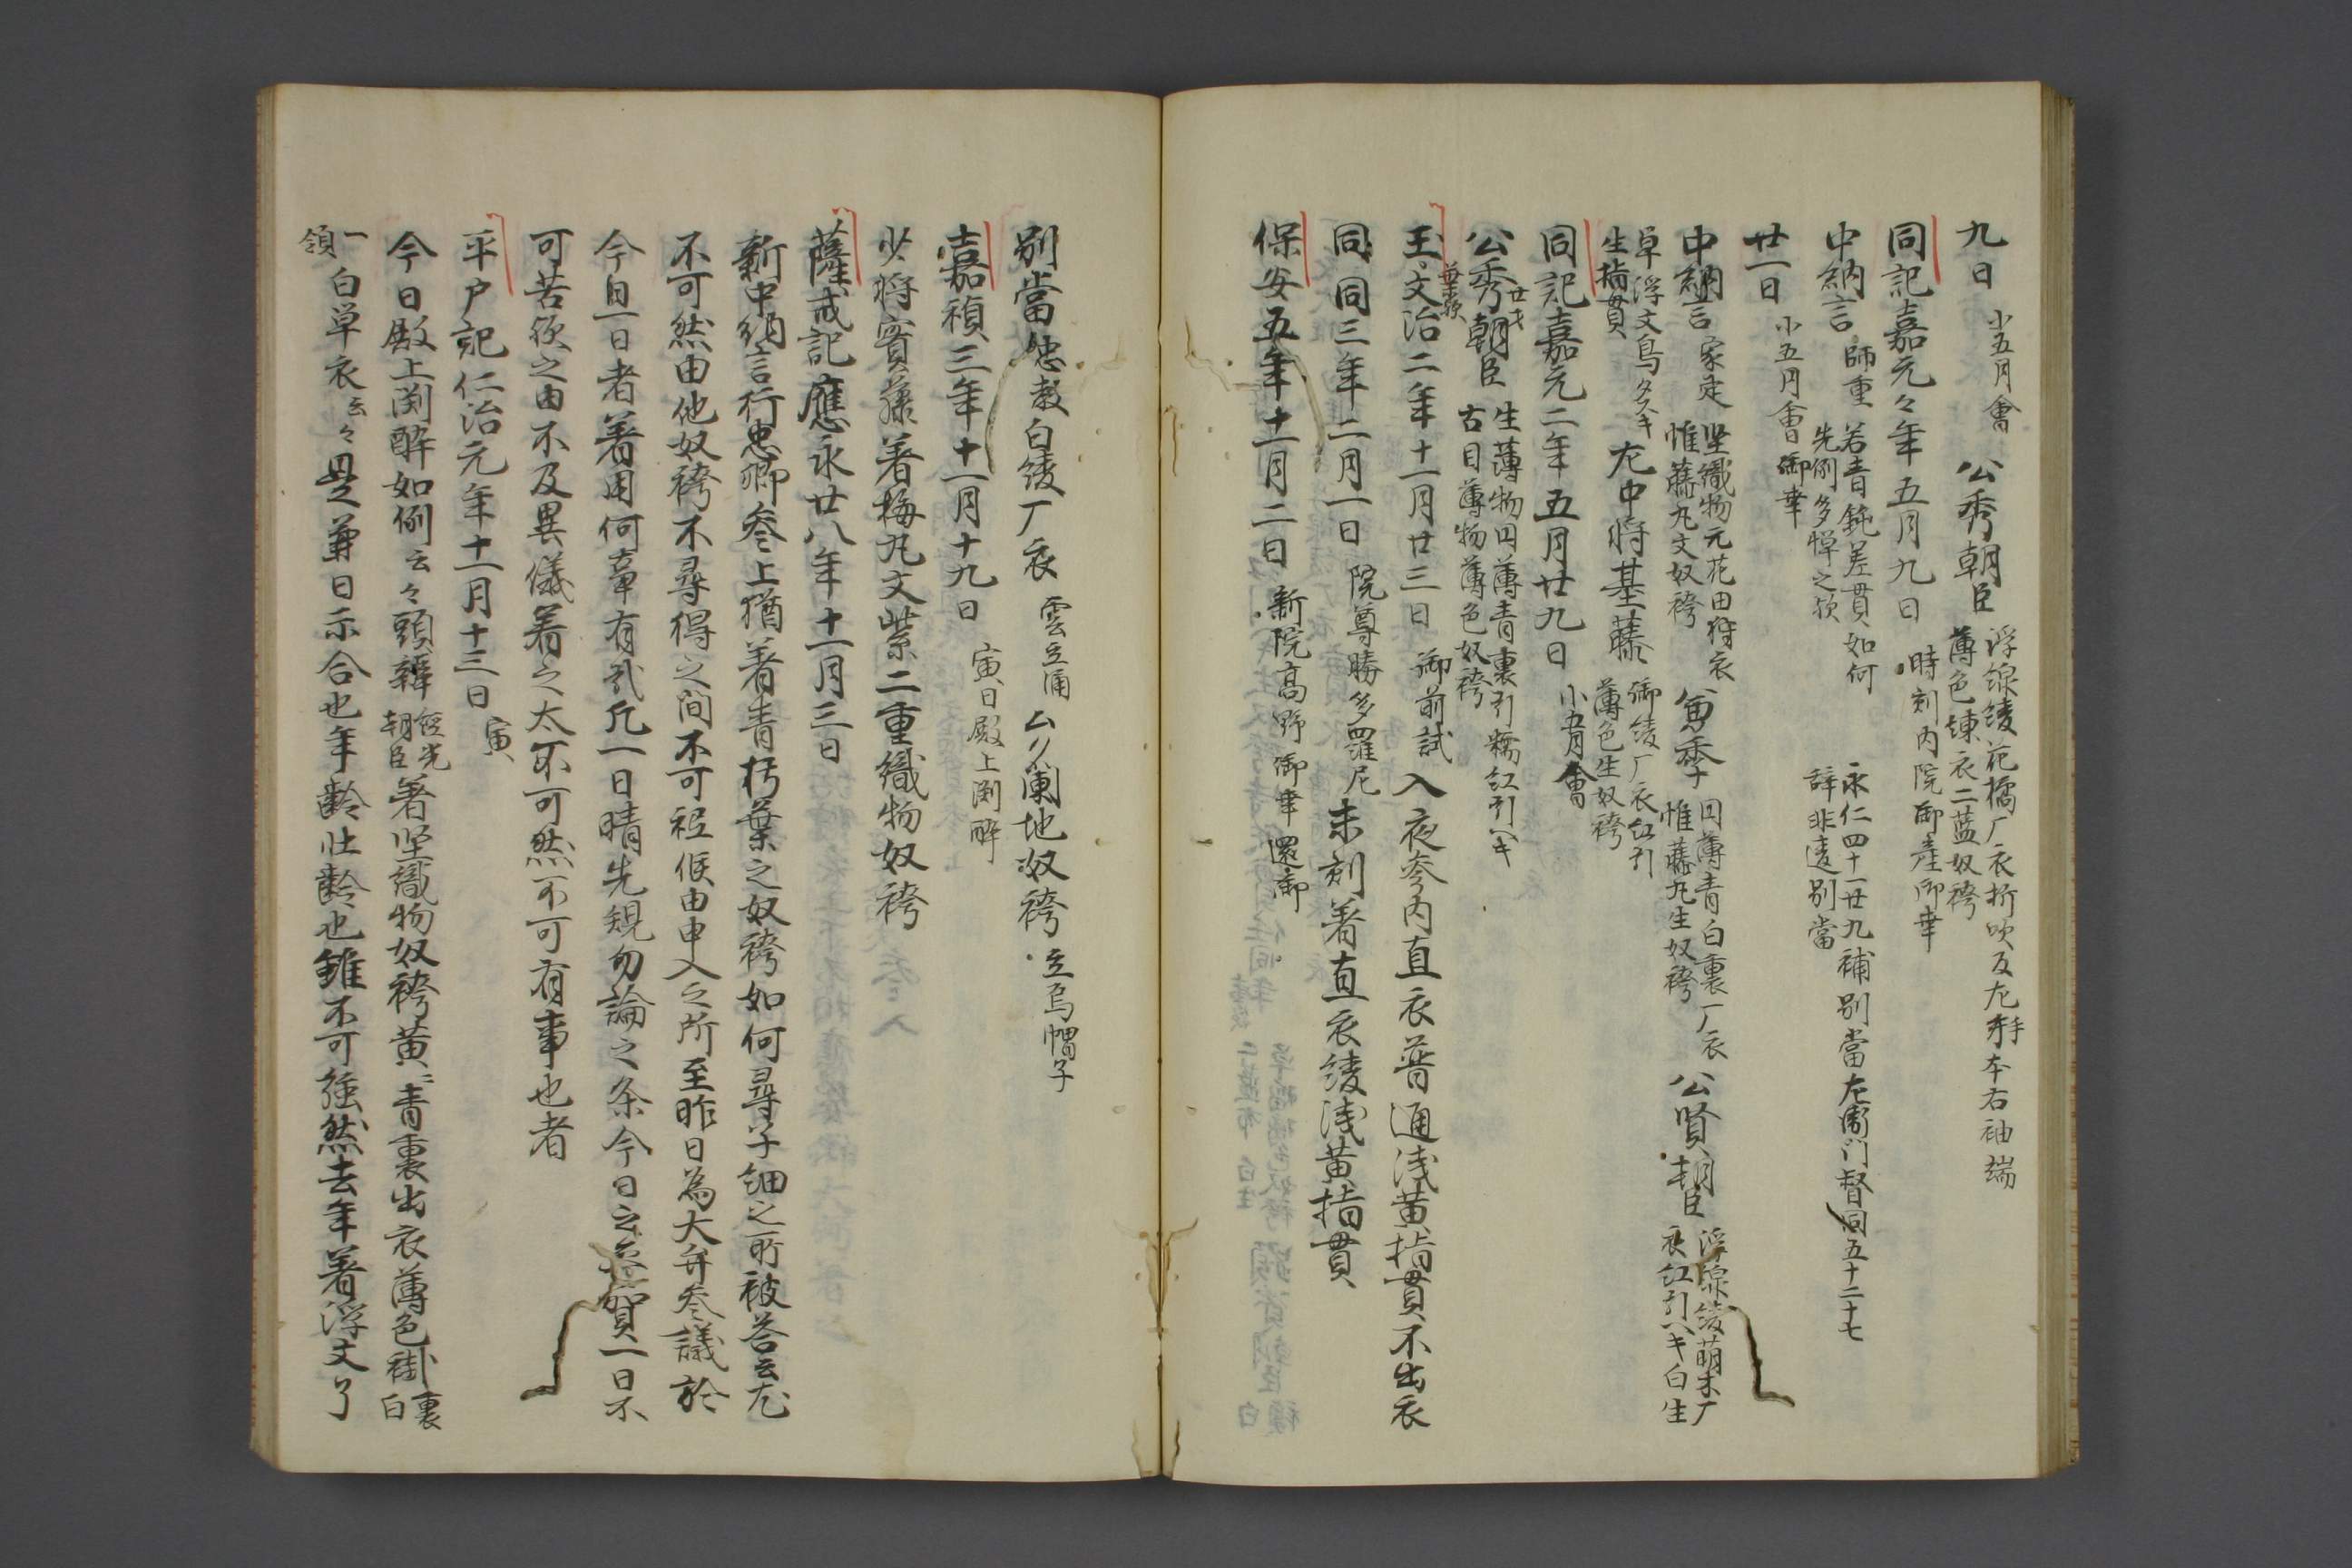 九日 小五月會 公秀朝臣 浮線綾花橘厂衣折吹反左手本右袖端
薄色練衣二藍奴袴
同記嘉元々年五月九日 時刻内院御産御幸
中納言 師重 若青鈍差貫如何 永仁四十一廿九補別當左衛門督同五十二十七
先例多憚之欤 辞非違別當
廿一日 小五月會御幸
中納言 家定 堅織物元花田狩衣 兼季 同薄青白裏厂衣 公賢朝臣 浮線綾萌木厂
惟藤丸文奴袴 惟藤丸生奴袴 衣紅引ヘキ白生
卓浮文鳥タスキ 左中将基藤 御綾厂衣紅引
生指貫 薄色生奴袴
同記嘉元二年五月廿九日 小五月會
公秀朝臣 廿七 生薄物同薄青裏引糯紅引ヘキ
古目薄物薄色奴袴
玉文治二年十一月廿三日 御前試 入夜参内直衣普通浅黄指貫不出衣
同同三年二月一日 院尊勝多羅尼 未刻着直衣綾浅黄指貫
保安五年十一月二日 新院高野御幸還御
別當忠教白綾厂衣 雲立涌 蘭地奴袴 立烏帽子
嘉禎三年十一月十九日 寅日殿上渕酔
少将實藤着梅丸文紫二重織物奴袴
薩戒記應永廿八年十一月三日
新中納言行忠卿参上猶着青朽葉之奴袴如何尋子細之所被答云尤
不可然由他奴袴不尋得之间不可祗候由申入之所至昨日為大弁参議於
今日一日者着用何事有哉凡一日晴先規勿論之条今日之 賀一日不
可苦欤之由不及異儀着之太不可然不可有事也者
平戸記仁治元年十一月十三日 寅
今日殿上渕酔如例云々頭辨 経光朝臣 着堅織物奴袴黄ニ青裏出衣薄色褂 裏白
一領 白単衣云々是兼日示合也年齢壮齢也雖不可強然去年着浮文了